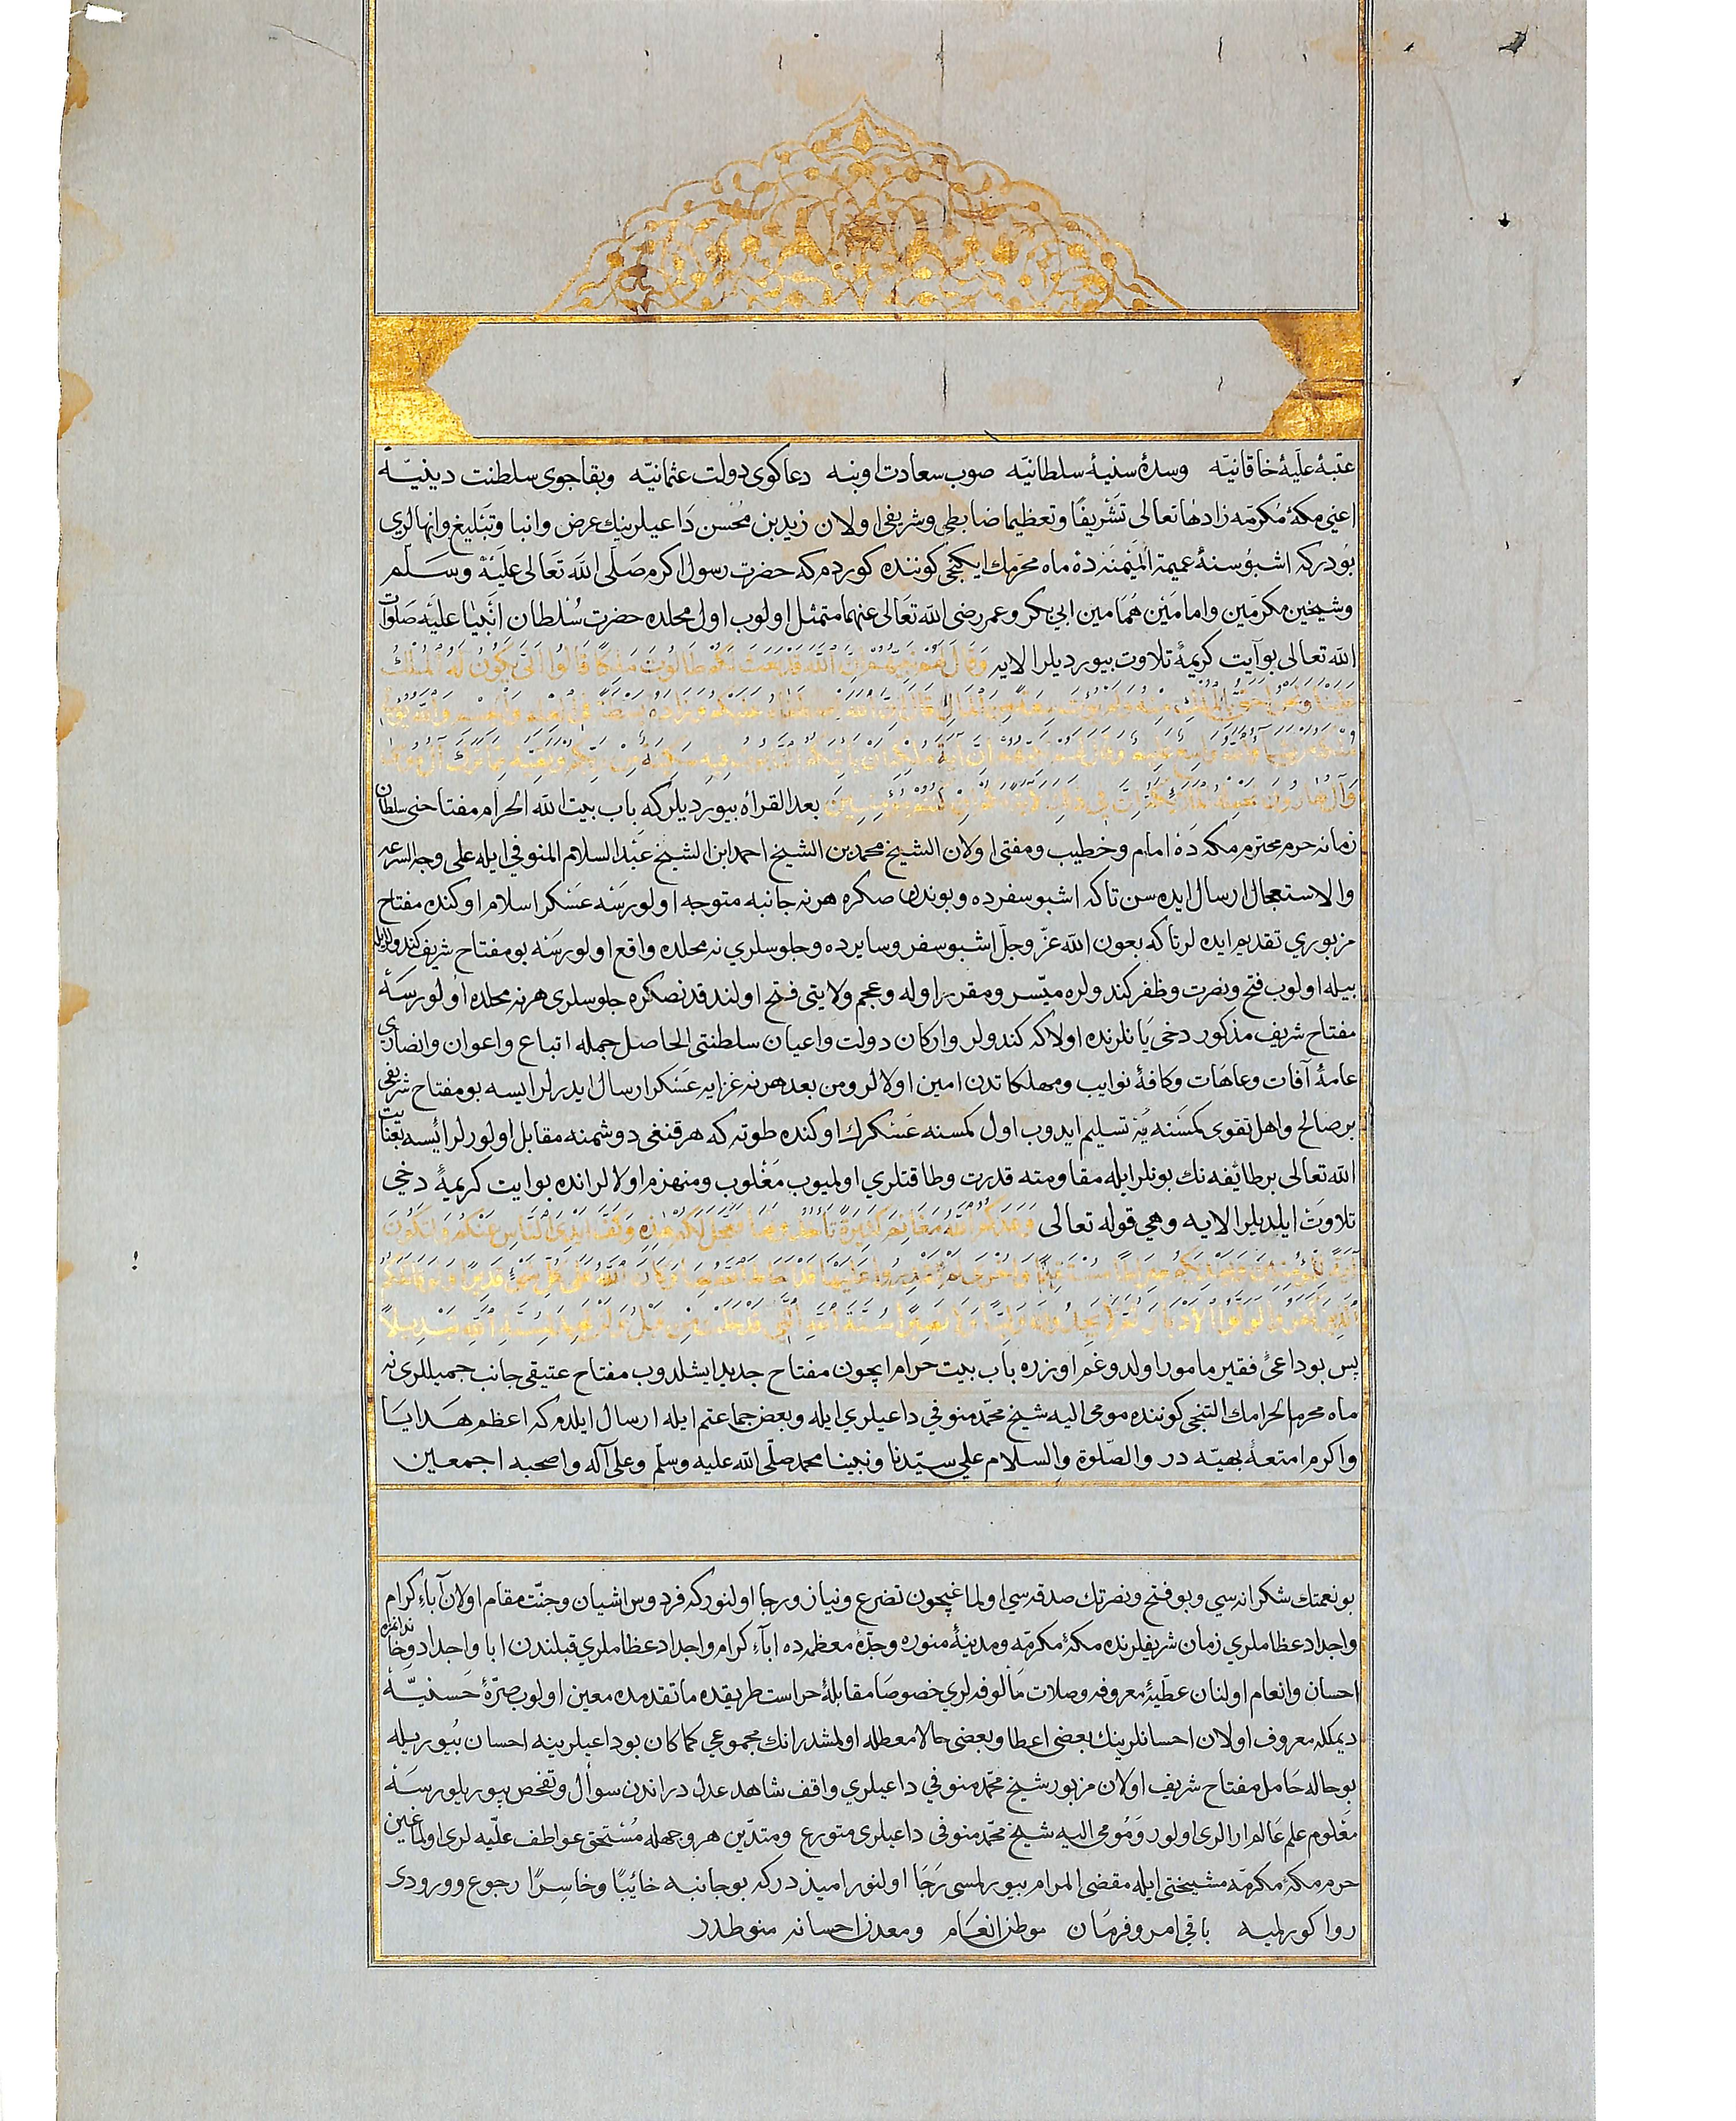 عتبهٔ علیهٔ خاقانیّه وسدهٔ سنیهٔ سلطانیّه صوب سعادت اوبنه دعاکوی دولت عثمانیّه وبقاجوی سلطنت دینیّه
اعنی مکهٔ مُکرمّه زادهٰا تعالی تَشْریفًا وتعظیما ضابطی وشریفی اولان زید بن مُحْسن دَاعیلرینك عرض وانبا وتَبْلیغ وانهالری
بُودرکه اشبو سنهٔ عمیمة المَیْمَنَه ده ماه محرّمك ایکنجی کوننده کوردم که حضرت رسول اکرم صَلَّی اللّه تَعَالی عَلَیْهْ وسَلَّم
وشیخین مکرمّین وامامَیْن هُمَامین ابی بکر وعمر رضی اللّه تعَالی عنهما متمثل اولوب اول محلده حضرت سُلطان انبیٰا علیَه صَلوَات
اللّه تعالی بو آیت کریمهٔ تلاوت بیوردیلر الایه وَقَالَ لَهُمْ نَبِيُّهُمْ إِنَّ اللّٰهَ قَدْ بَعَثَ لَكُمْ طَالُوتَ مَلِكًا قَالُوا أَنَّى يَكُونُ لَهُ الْمُلْكُ
عَلَيْنَا وَنَحْنُ أَحَقُّ بِالْمُلْكِ مِنْهُ وَلَمْ يُؤْتَ سَعَةً مِنَ الْمَالِ قَالَ إِنَّ اللّٰهَ اصْطَفَاهُ عَلَيْكُمْ وَزَادَهُ بَسْطَةً فِي الْعِلْمِ وَالْجِسْمِ وَاللّٰهُ يُؤْتِي
مُلْكَهُ مَنْ يَشَاءُ وَاللّٰهُ وَاسِعٌ عَلِيمٌ وَقَالَ لَهُمْ نَبِيُّهُمْ إِنَّ آيَةَ مُلْكِهِ أَنْ يَأْتِيَكُمُ التَّابُوتُ فِيهِ سَكِينَةٌ مِنْ رَبِّكُمْ وَبَقِيَّةٌ مِمَّا تَرَكَ آلُ مُوسَى
وَآلُ هَارُونَ تَحْمِلُهُ الْمَلَائِكَةُ إِنَّ فِي ذَلِكَ لَآيَةً لَكُمْ إِنْ كُنْتُمْ مُؤْمِنِينَ بعد القراه بیوردیلر که باب بیت اللّه الحرام مفتاحنی سلطان
زمانه حرم محترم مکه دَه امام وخطیب ومفتی اولان الشیخ محمد بن الشیخ احمد ابن الشیخ عبْد السلام المنوفی ایله علی وجه السرعه
والاستعجال ارسال ایده سن تاکه اشبو سفرده وبوندن صکره هرنه جانبه متوجه اولورسَه عسْکر اسلام اوکنده مفتاح
مزبوری تقدیم ایده لر تا که بعون اللّه عزّ وجلّ اشبو سفر وسایرده وجلوسلری نه محلده واقع اولورسَه بو مفتاح شریف کندولرایله
بیله اولوب فتح ونصرت وظفر کندولره میّسر ومقرر اوله وعجم ولایتی فتح اولندقدنصکره جلوسلری هرنه محلده اولورسَهٔ
مفتاح شریف مذکور دخی یَانلرنده اولا که کندولر وارکان دولت واعیان سلطنتی الحاصل جمله اتباع واعوان وانصاری
عامهٔ آفات وعاهَات وکافهٔ نوایب ومهلکاتدن امین اولالر ومن بعد هرنه غزایه عسَکر ارسال ایدرلر ایسه بو مفتاح شریفی
بر صالح واهل تقوی کمسَنه یُه تسلیم ایدوب اول کمسنه عَسْکرك اوکنده طوته که هر قنغی دوشمنه مقابل اولورلر ایسه بعنایت
اللّه تعالی بر طائفه نك بونلر ایله مقاومته قدرت وطاقتلری اولمیوب مَغْلوب ومنهزم اولالر انده بو ایت کریمهٔ دخی
تلاوت ایلدیلر الایه وهی قوله تعالی وَعَدَكُمُ اللّٰهُ مَغَانِمَ كَثِيرَةً تَأْخُذُونَهَا فَعَجَّلَ لَكُمْ هٰذِهِ وَكَفَّ أَيْدِيَ النَّاسِ عَنْكُمْ وَلِتَكُونَ
آيَةً لِلْمُؤْمِنِينَ وَيَهْدِيَكُمْ صِرَاطًا مُسْتَقِيمًا وَأُخْرَى لَمْ تَقْدِرُوا عَلَيْهَا قَدْ أَحَاطَ اللّٰهُ بِهَا وَكَانَ اللّٰهُ عَلَى كُلِّ شَيْءٍ قَدِيرًا وَلَوْ قَاتَلَكُمُ
الَّذِينَ كَفَرُوا لَوَلَّوُا الْأَدْبَارَ ثُمَّ لَا يَجِدُونَ وَلِيًّا وَلَا نَصِيرًا سُنَّةَ اللّٰهِ الَّتِي قَدْ خَلَتْ مِنْ قَبْلُ وَلَنْ تَجِدَ لِسُنَّةِ اللّٰهِ تَبْدِيلًا
پس بو داعیٔ فقیر مامور اولدوغم اوزره باب بیت حرام ایچون مفتاح جدید ایشلدوب مفتاح عتیقی جانب جمیللرینه
ماه محرم الحرامك التنجی کوننده مومی الیه شیخ محمّد منوفی داعیلری ایله وبعض جماعتم ایله ارسال ایلدم که اعظم هَدایَا
واکرم امتعهٔ بهیّه در والصّلوة والسلام علی سیّدنا ونبینا محمد صلّی اللّه علیه وسلّم وعلی آله واصحبه اجمعین
بو نعمتك شکرانه سی وبو فتح ونصرتك صدقه سی اولماغیچون تضرع ونیاز ورجا اولنور که فردوس اشیان وجنّت مقام اولان آباءِ کرام
واجداد عظاملری زمان شریفلرنده مکهٔ مکرمّه ومدینهٔ منوره وجدّهٔ معظمه ده ابآءِ کرام واجداد عظاملری قبلندن ابا واجداد وخاندانمزه
احسان وانعام اولنان عطیهٔ معروفه وصلات مَألوفه لری خصوصَا مقابلهٔ حراست طریقده ما تقدمده معین اولوب صرّهٔ حَسنیّهٔ
دیمکله معروف اولان احسانلرینك بعضی اعطا وبعضی حالا معطله اولمشدر انك مجموعی کما کان بو داعیلرینه احسان بُیوریله
بو حاله حَامل مفتاح شریف اولان مزبور شیخ محمّد منوفی داعیلری واقف شاهد عدلدر اندن سوأل وتفخص بیوریلورسَهٔ
معْلوم علم عَالم ارالری اولور وَمُومی الیه شیخ محمّد منوفی داعیلری متورع ومتدّین هر وجهله مُسْتحق عواطف علیّه لری اولماغین
حرم مکهٔ مکرمّه مشیختی ایله مقضی المرام بیورلمسی رَجَا اولنور امیذدر که بو جانبه خائبًا وخاسِرًا رجوع وورودی
روا کورلمیه باقی امر وفرمَان موطن انعَام ومعدن احسانه منوطدر